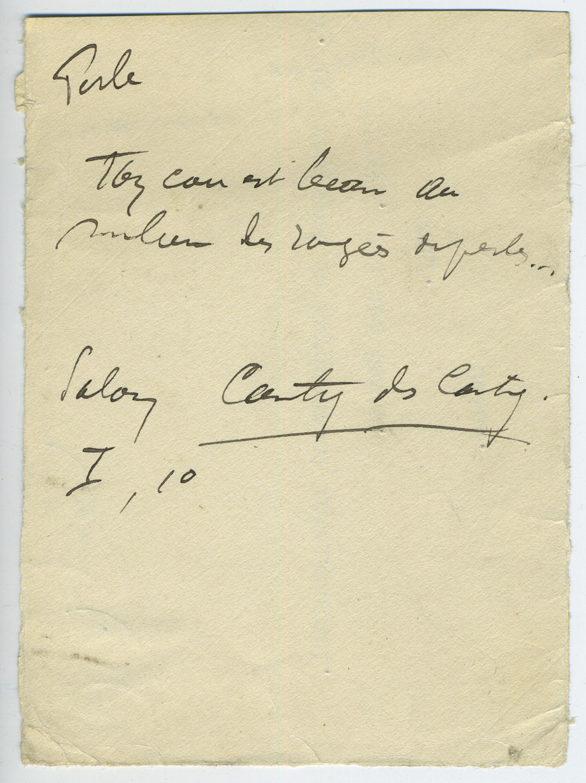 Perle
Ton cou est beau au
milieu des rangées de perles...
Salomon Cantique des Cantiq.
I, 10